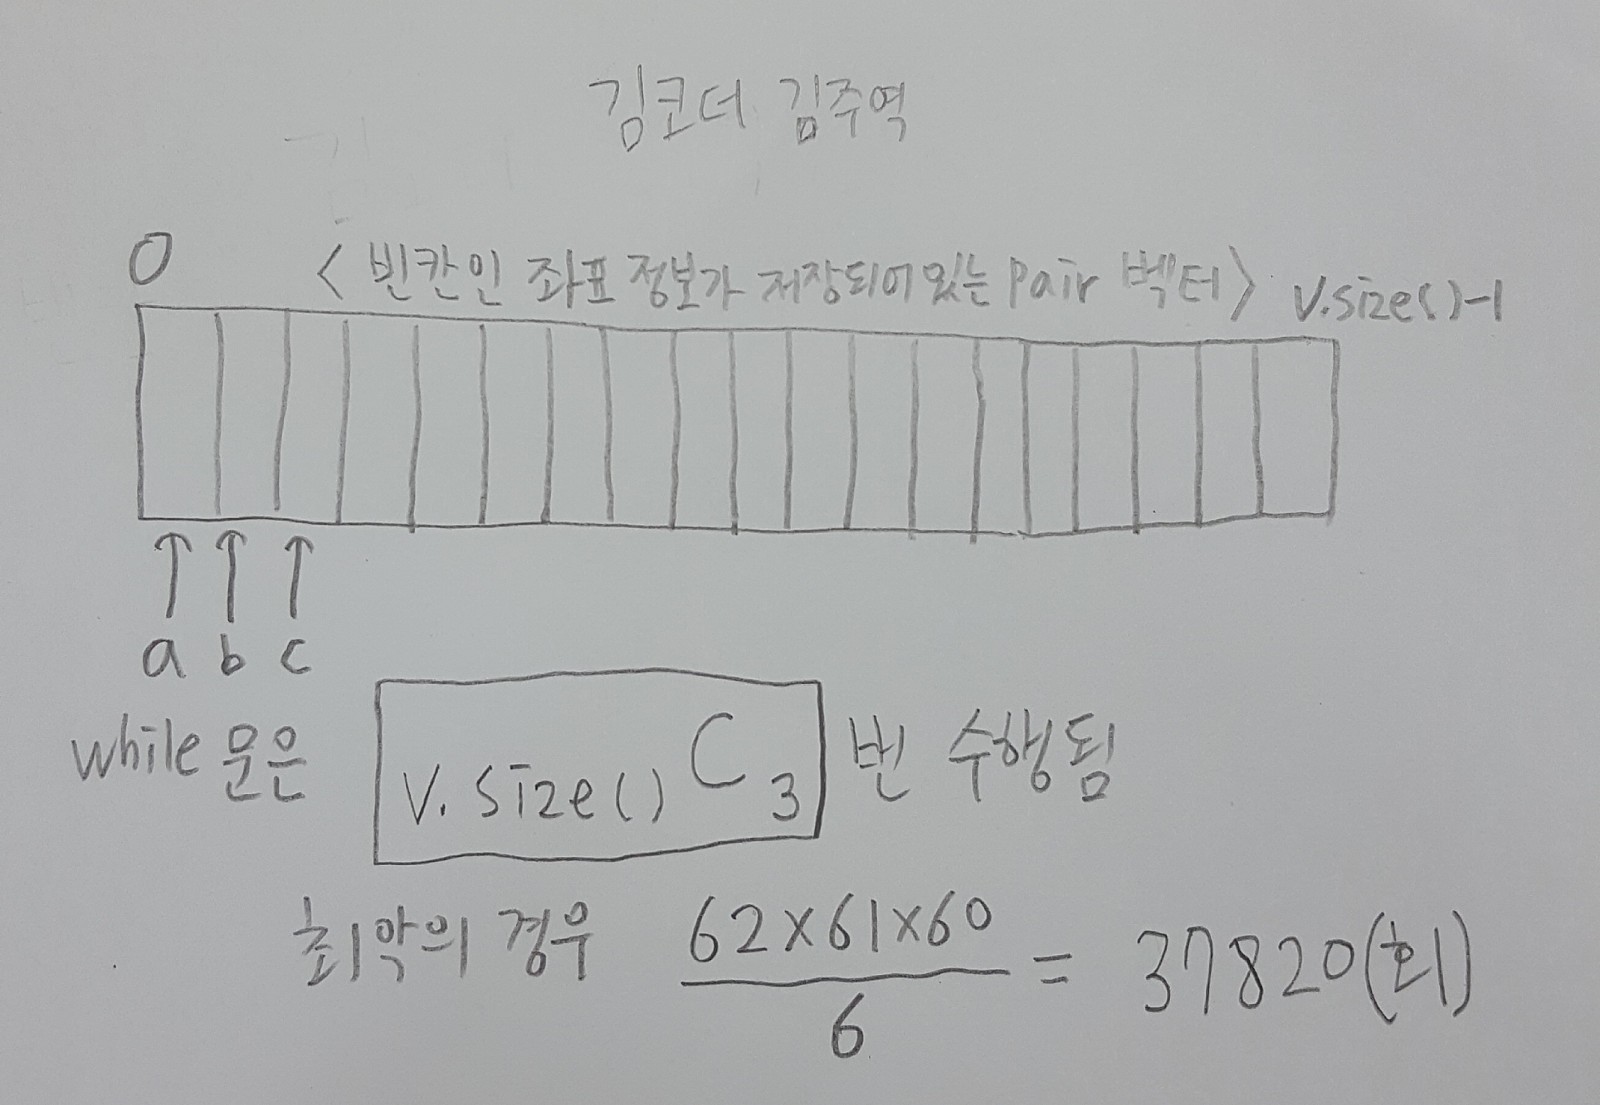 김코더 김주역
0 <빈칸인 좌표 정보가 저장되어 있는 pair 벡터> v.size()-1
a b c
while 문은 v.size() C 3 번 수행됨
최악의 경우 62×61×60 / 6 = 37820(회)